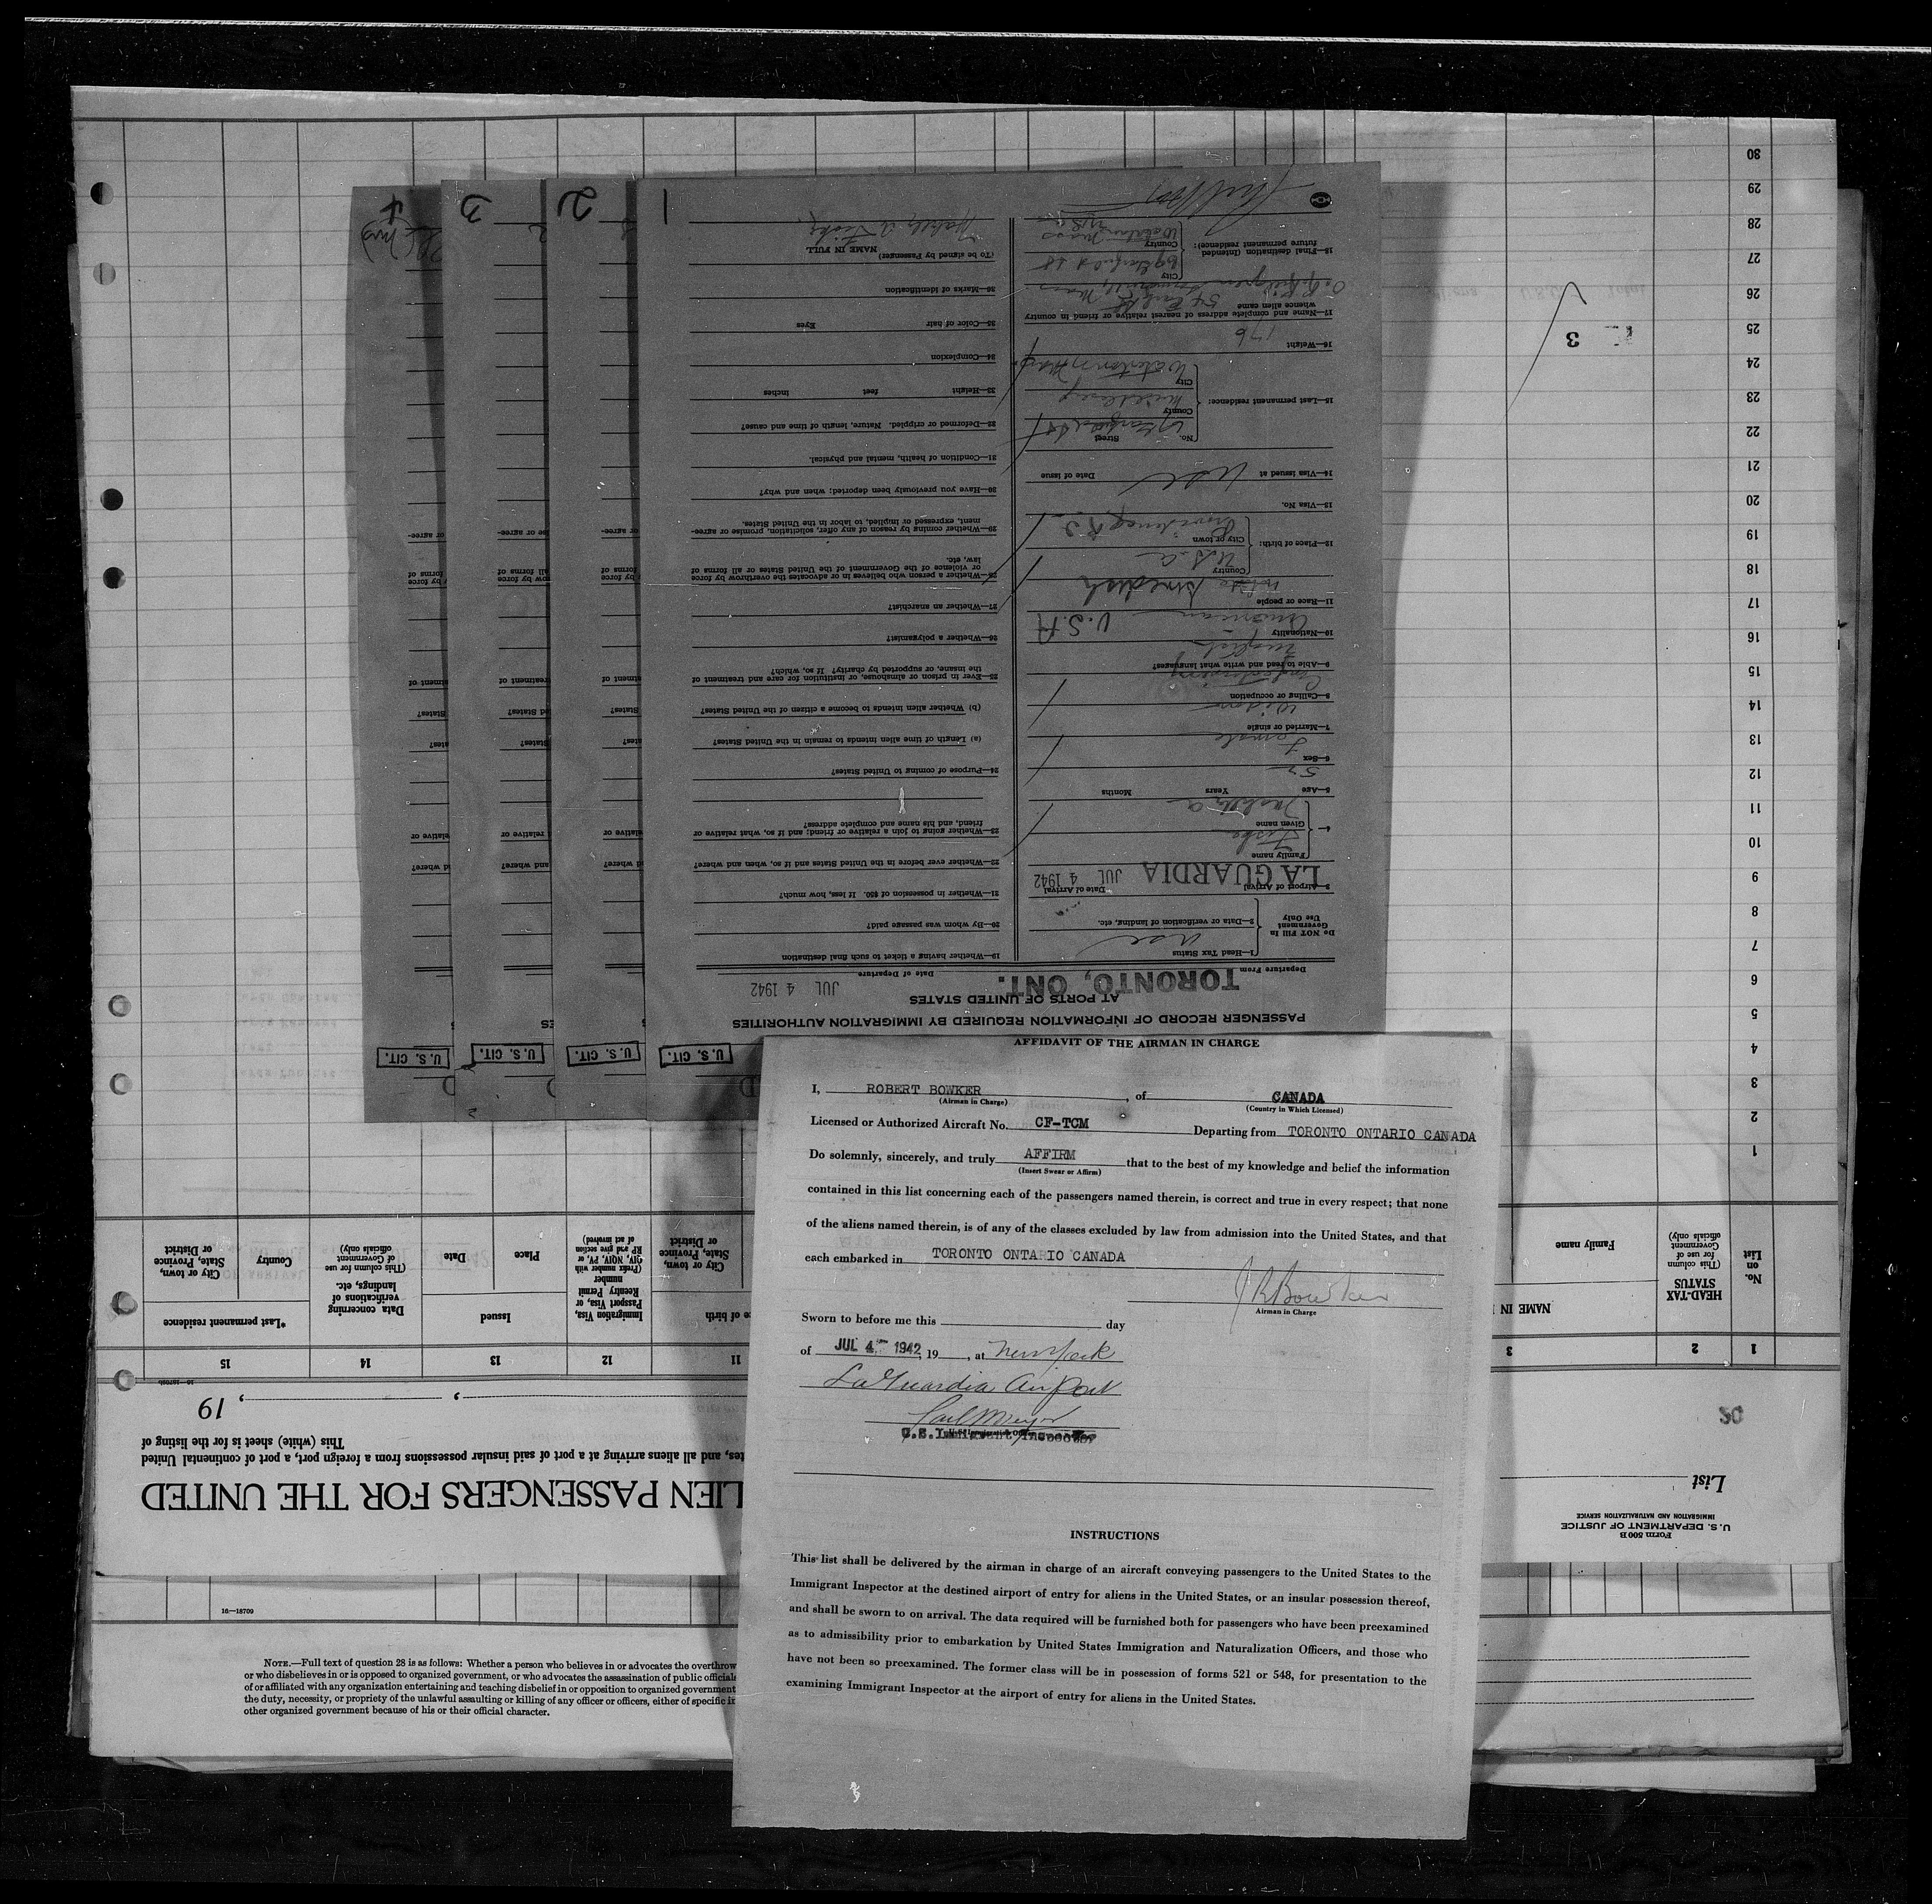 AFFIDAVIT OF THE AIRMAN IN CHARGE
I, ROBERT BOWKER, of CANADA
(Airman in Charge) (Country in Which Licensed)
Licensed or Authorized Aircraft No. CF-TCM Departing from TORONTO ONTARIO CANADA
Do solemnly, sincerely, and truly AFFIRM that to the best of my knowledge and belief the information
(Insert Swear or Affirm)
contained in this list concerning each of the passengers named therein, is correct and true in every respect; that none
of the aliens named therein, is of any of the classes excluded by law from admission into the United States, and that
each embarked in TORONTO ONTARIO CANADA
J R Bowker
Airman in Charge
Sworn to before me this day
of JUL 4 1942, 19 , at New York
LaGuardia Airport
U.S. Immigrant Inspector
INSTRUCTIONS
This list shall be delivered by the airman in charge of an aircraft conveying passengers to the United States to the
Immigrant Inspector at the destined airport of entry for aliens in the United States, or an insular possession thereof,
and shall be sworn to on arrival. The data required will be furnished both for passengers who have been preexamined
as to admissibility prior to embarkation by United States Immigration and Naturalization Officers, and those who
have not been so preexamined. The former class will be in possession of forms 521 or 548, for presentation to the
examining Immigrant Inspector at the airport of entry for aliens in the United States.
U. S. CIT.
U. S. CIT.
U. S. CIT.
U. S. CIT.
PASSENGER RECORD OF INFORMATION REQUIRED BY IMMIGRATION AUTHORITIES
AT PORTS OF UNITED STATES
TORONTO, ONT. JUL 4 1942
Departure From Date of Departure
Do NOT Fill In
Government
Use Only
1—Head Tax Status USC
2—Data or verification of landing, etc.
LA GUARDIA JUL 4 1942
3—Airport of Arrival Date of Arrival
4—
Family name
Given name
5—Age Years Months
52
6—Sex
Female
7—Married or single
Widow
8—Calling or occupation
9—Able to read and write what languages?
English
10—Nationality
American U.S.A
11—Race or people
White Swedish
12—Place of birth:
Country U.S.A
City or town Providence R.I
13—Visa No.
14—Visa issued at USC Date of issue
15—Last permanent residence:
No. Street
County Middlesex
City Watertown Mass
16—Weight
176
17—Name and complete address of nearest relative or friend in country
whence alien came
18—Final destination (Intended
future permanent residence):
City
County
19—Whether having a ticket to such final destination
20—By whom was passage paid?
21—Whether in possession of $50. If less, how much?
22—Whether ever before in the United States and if so, when and where?
23—Whether going to join a relative or friend; and if so, what relative or
friend, and his name and complete address?
24—Purpose of coming to United States?
(a) Length of time alien intends to remain in the United States?
(b) Whether alien intends to become a citizen of the United States?
25—Ever in prison or almshouse, or institution for care and treatment of
the insane, or supported by charity? If so, which?
26—Whether a polygamist?
27—Whether an anarchist?
28—Whether a person who believes in or advocates the overthrow by force
or violence of the Government of the United States or all forms of
law, etc.
29—Whether coming by reason of any offer, solicitation, promise or agree-
ment, expressed or implied, to labor in the United States.
30—Have you previously been deported; when and why?
31—Condition of health, mental and physical.
32—Deformed or crippled. Nature, length of time and cause?
33—Height feet inches
34—Complexion
35—Color of hair Eyes
36—Marks of identification
(To be signed by Passenger)
NAME IN FULL
1
2
3
4
(Mrs)
Form 500 B
U. S. DEPARTMENT OF JUSTICE
IMMIGRATION AND NATURALIZATION SERVICE
List
LIEN PASSENGERS FOR THE UNITED
tes, and all aliens arriving at a port of said insular possessions from a foreign port, a port of continental United
This (white) sheet is for the listing of
, , 19
1 2 3 11 12 13 14 15
No.
on
List
HEAD-TAX
STATUS
(This column
for use of
Government
officials only)
NAME IN
Family name
ce of birth
City or town,
State, Province
or District
Immigration Visa,
Passport Visa, or
Reentry Permit
number
(Prefix number with
QIV, NQIV, PV, or
RP and give section
of act involved)
Issued
Place Date
Data concerning
verifications of
landings, etc.
(This column for use
of Government
officials only)
*Last permanent residence
Country
City or town,
State, Province
or District
1
2
3
4
5
6
7
8
9
10
11
12
13
14
15
16
17
18
19
20
21
22
23
24
25
26
27
28
29
30
3
16—18709
NOTE.—Full text of question 28 is as follows: Whether a person who believes in or advocates the overthrow
or who disbelieves in or is opposed to organized government, or who advocates the assassination of public officials
of or affiliated with any organization entertaining and teaching disbelief in or opposition to organized government
the duty, necessity, or propriety of the unlawful assaulting or killing of any officer or officers, either of specific
other organized government because of his or their official character.